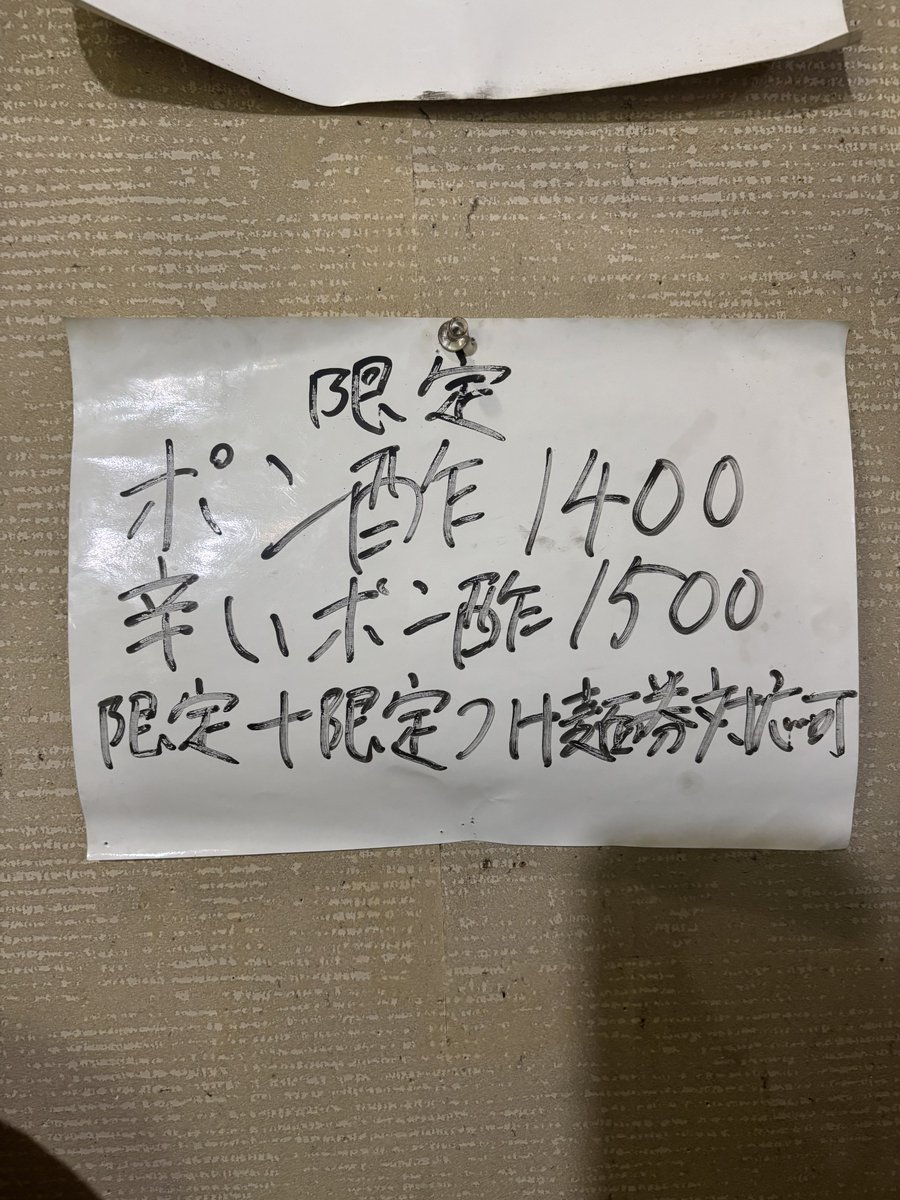 限定
ポン酢 1400
辛いポン酢 1500
限定+限定つけ麺券対応可